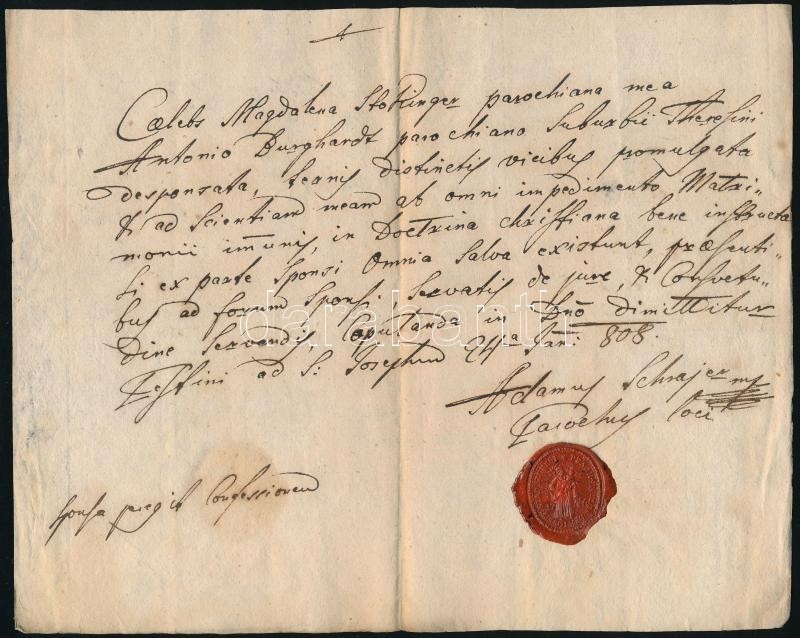 Caelebs Magdalena Stokinger parochiana mea
Antonio Burghardt parochiano Suburbii Theresini
desponsata, ternis distinctis vicibus promulgata
& ad Scientiam meam ab omni impedimento Matri-
monii immunis, in Doctrina Christiana bene instructa
Si ex parte Sponsi Omnia Salva existunt, praesenti-
bus ad forum Sponsi, Servatis de jure, & Consvetu-
dine Servandis, Copulanda in Dno dimittitur
Pestini ad S: Josephum Jani 808.
Adamus Schrajer mp
Parochus loci
Sponsa peregit Confessionem
darabanth